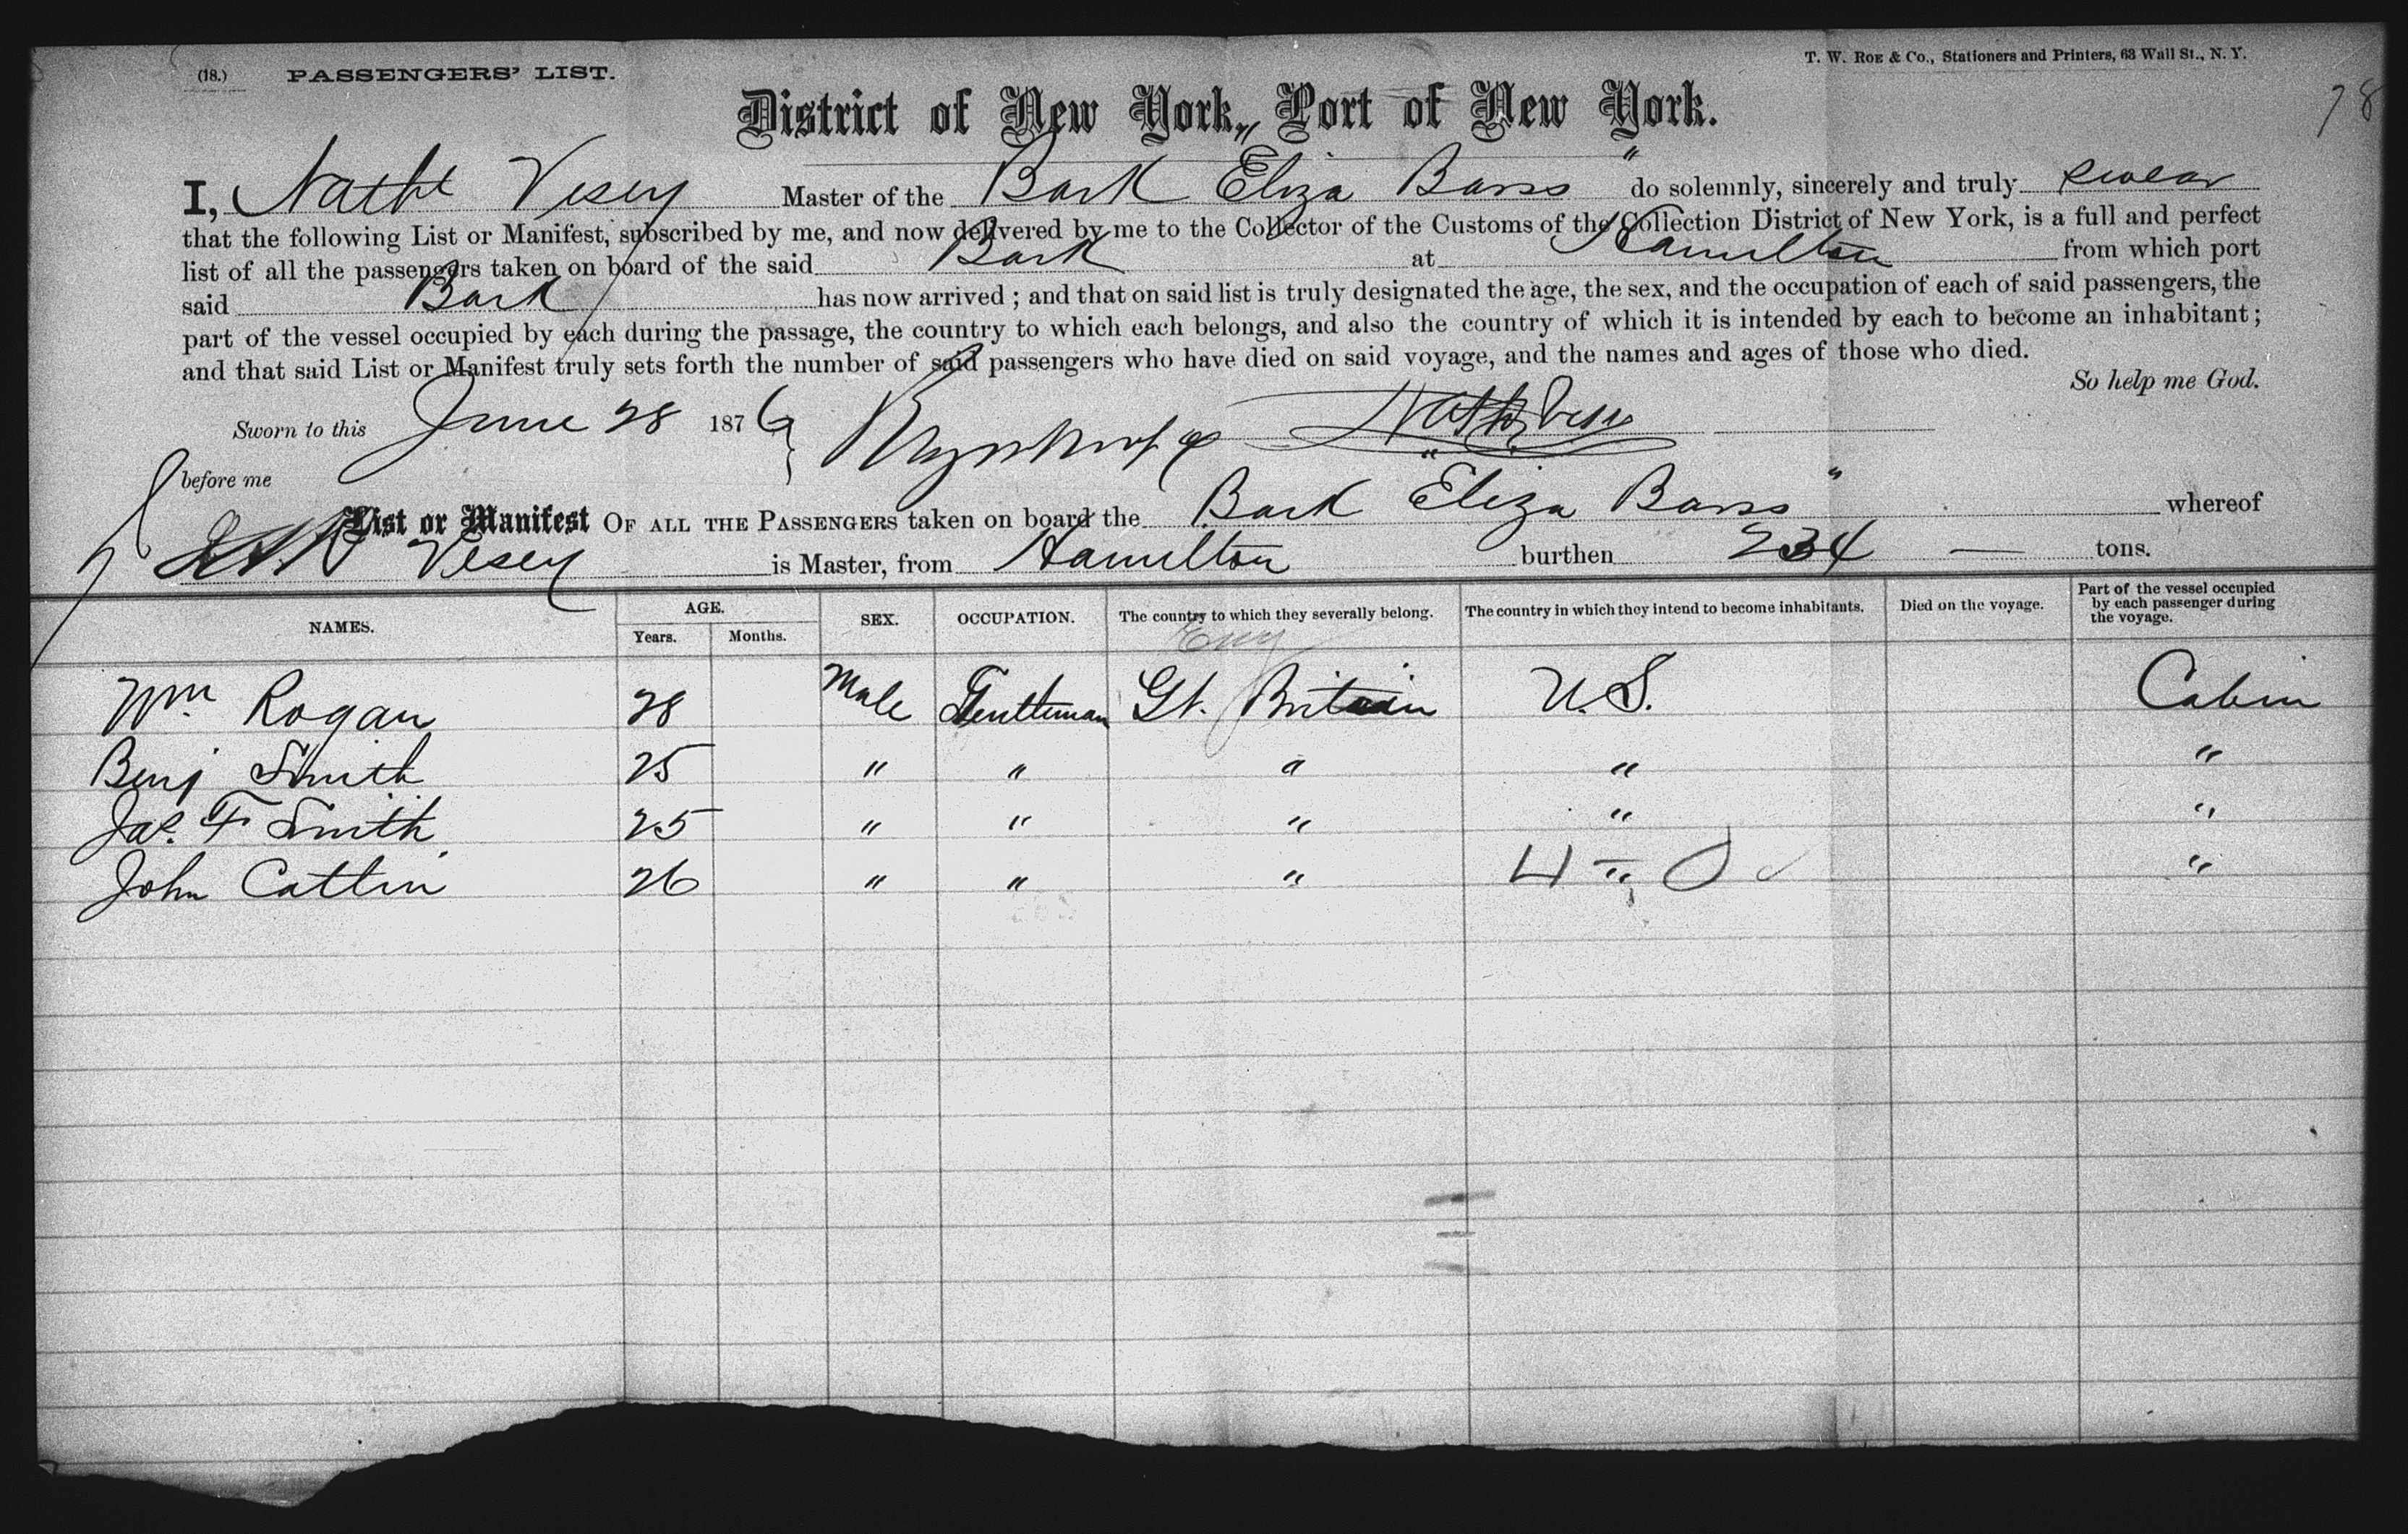 (18.) PASSENGERS' LIST.
T. W. ROE & Co., Stationers and Printers, 63 Wall St., N. Y.
78
District of New York, Port of New York.
I, Nathl Vesey Master of the Bark "Eliza Barss" do solemnly, sincerely and truly swear
that the following List or Manifest, subscribed by me, and now delivered by me to the Collector of the Customs of the Collection District of New York, is a full and perfect
list of all the passengers taken on board of the said Bark at Hamilton from which port
said Bark has now arrived ; and that on said list is truly designated the age, the sex, and the occupation of each of said passengers, the
part of the vessel occupied by each during the passage, the country to which each belongs, and also the country of which it is intended by each to become an inhabitant ;
and that said List or Manifest truly sets forth the number of said passengers who have died on said voyage, and the names and ages of those who died.
So help me God.
Sworn to this June 28 1876 Nathl Vesey
before me
List or Manifest OF ALL THE PASSENGERS taken on board the Bark "Eliza Barss" whereof
Vesey is Master, from Hamilton burthen 234 — tons.
NAMES. AGE. Years. Months. SEX. OCCUPATION. The country to which they severally belong. The country in which they intend to become inhabitants. Died on the voyage. Part of the vessel occupied by each passenger during the voyage.
Eng
Wm Rogan 28 Male Gentleman Gt. Britain U.S. Cabin
Benj Smith 25 " " " " "
Jas. F Smith 25 " " " " "
John Cattlin 26 " " " 4 " 0 "